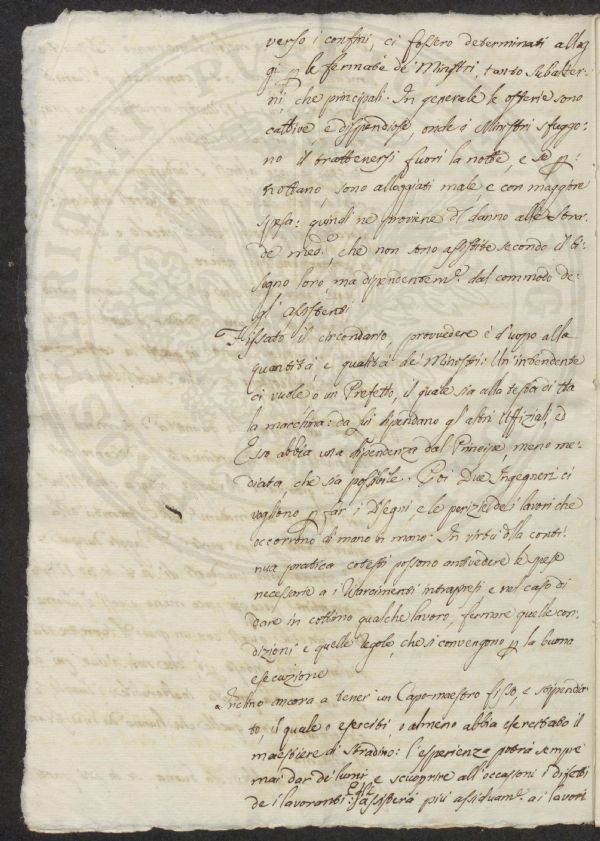 verso i confini, ci fossero determinati allog
gi p le fermate de' Ministri, tanto subalter
ni, che principali. In generale le osterie sono
cattive, e dispendiose, onde i Ministri sfuggo-
no il trattenersi fuori la notte, e se p
nottano, sono alloggiati male e con maggiore
spesa: quindi ne proviene il danno alle stra
de med.e, che non sono assistite secondo il bi-
sogno loro, ma dipendentem.e dal commodo de-
gl' Assistenti
Fissato il circondario, provvedere è d'uopo alla
quantità, e qualità de' Ministri: Un' intendente
ci vuole o un Prefetto, il quale sia alla testa di tta
la macchina: da lui dipendano gl' altri Uffiziali, ed
Esso abbia una dipendenza dal Principe meno me-
diata che sia possibile. Poi Due Ingegneri ci
vogliono p far i Disegni, e le perizie dei lavori che
occorrono di mano in mano. In virtù della conti-
nua pratica cotesti possono antivedere le spese
necessarie a i Risarcimenti intrapresi e nel caso di
dare in cottimo qualche lavoro, fermare quelle con-
dizioni e quelle regole, che si convengono p la buona
esecuzione
Inclino ancora a tener un Capo-maestro fisso, e stipendia
to, il quale o eserciti, o almeno abbia esercitato il
mestiere di stradino: l'esperienza potrà sempre
mai dar de' lumi e scuoprire all' occasioni i difetti
de i lavoranti: Egli assisterà più assiduam.e ai lavori